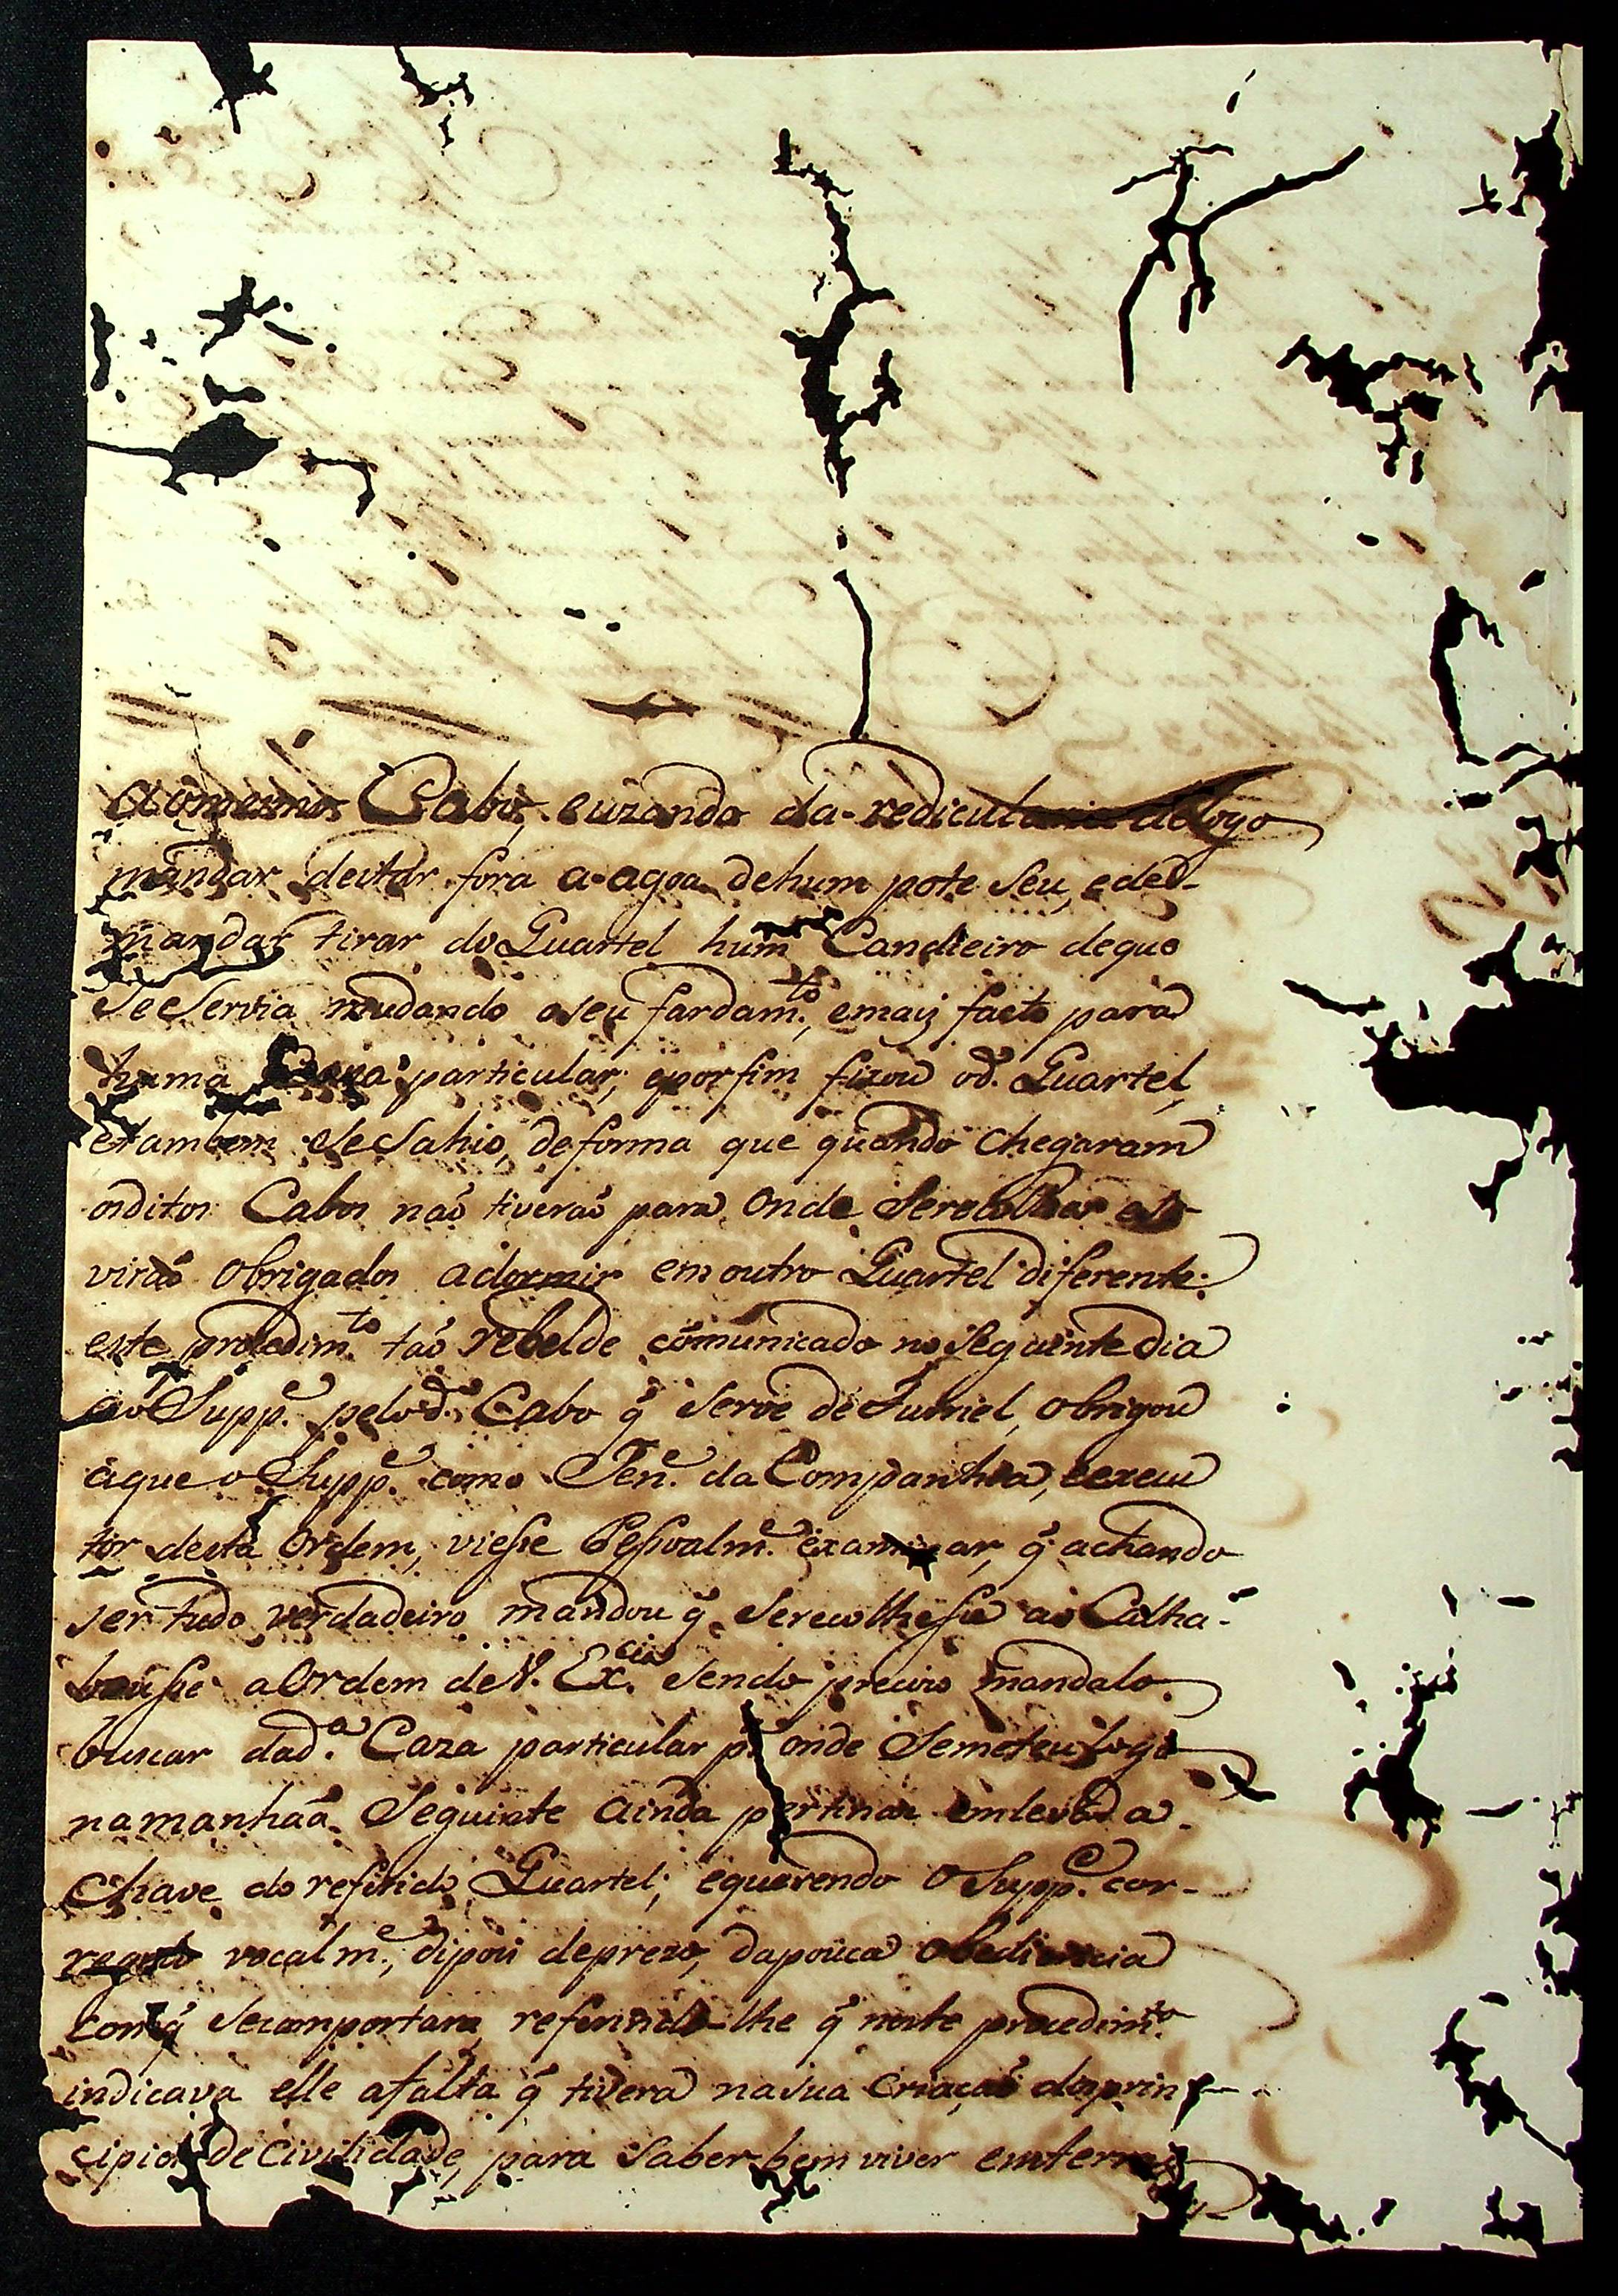 aomesmos Cabos, euzando da-rediculararia delogo
mandar deitar fora a-agoa dehum pote seu, eded-
mandar tirar do Quartel hum Candieiro deque
Se Servia mudando oseu fardam.to, emaiz facto para
huma particular, eporfim fixou od.o Quartel,
etambem seSahio, deforma que quando chegaram
osditos Cabos naõ tiveraõ para onde Serecolher
viraõ obrigados adormir emoutro Quartel diferente:
este prosedim.to taõ rebelde cõmunicado noseguinte dia
ao Supp.e pelod.o Cabo q̃ serve de Furriel, obrigou
aque o Supp.e como Ten.e da Companhia, eexecu
tor desta ordem, viesse Pessoalm.e examinar, q̃ achando
ser tudo verdadeiro mandou q̃ serecolhesse ao Calha-
bousse aOrdem deV. Ex.cia sendo precizo mandalo
buscar dad.a Caza particular p.a onde Semeteu logo
namanhaã Seguinte ainda pertinax emlevar a
Chave do referido Quartel; equerendo oSupp.e cor-
regelo vocalm.e, dipois deprezo, dapouca obediencia
comq̃ secomportara, referindo-lhe q̃ neste procedim.to
indicava elle afalta q̃ tivera nasua criaçaõ dosprin-
cipios de civilidade, para saber bem viver emterras